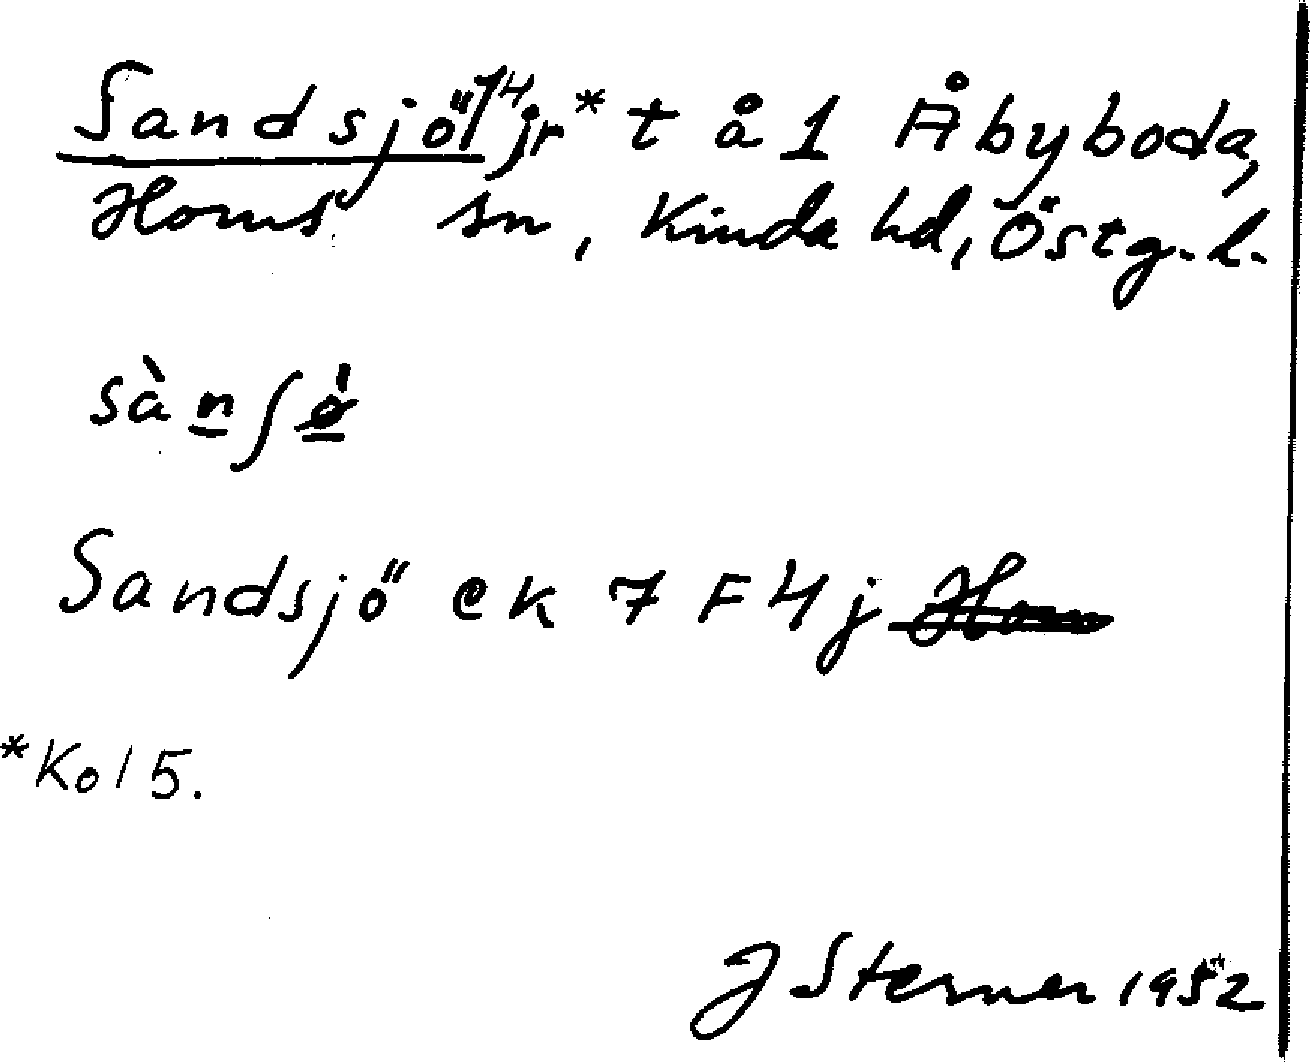 Sandsjö 14/jr* t å 1 Åbyboda,
Horns sn, Kinda hd, Östg. l.
sànʃø̀
Sandsjö ek 7 F 4 j
*Kol 5.
J Sterner 1952